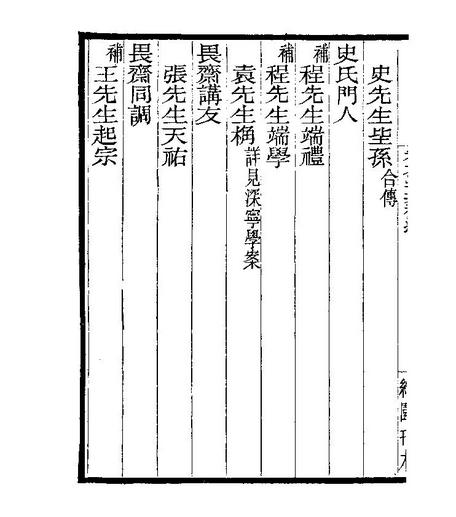 史先生坒孫合傳
史氏門人
補程先生端禮
補程先生端學
袁先生桷詳見深寧學案
畏齋講友
張先生天祐
畏齋同調
補王先生起宗